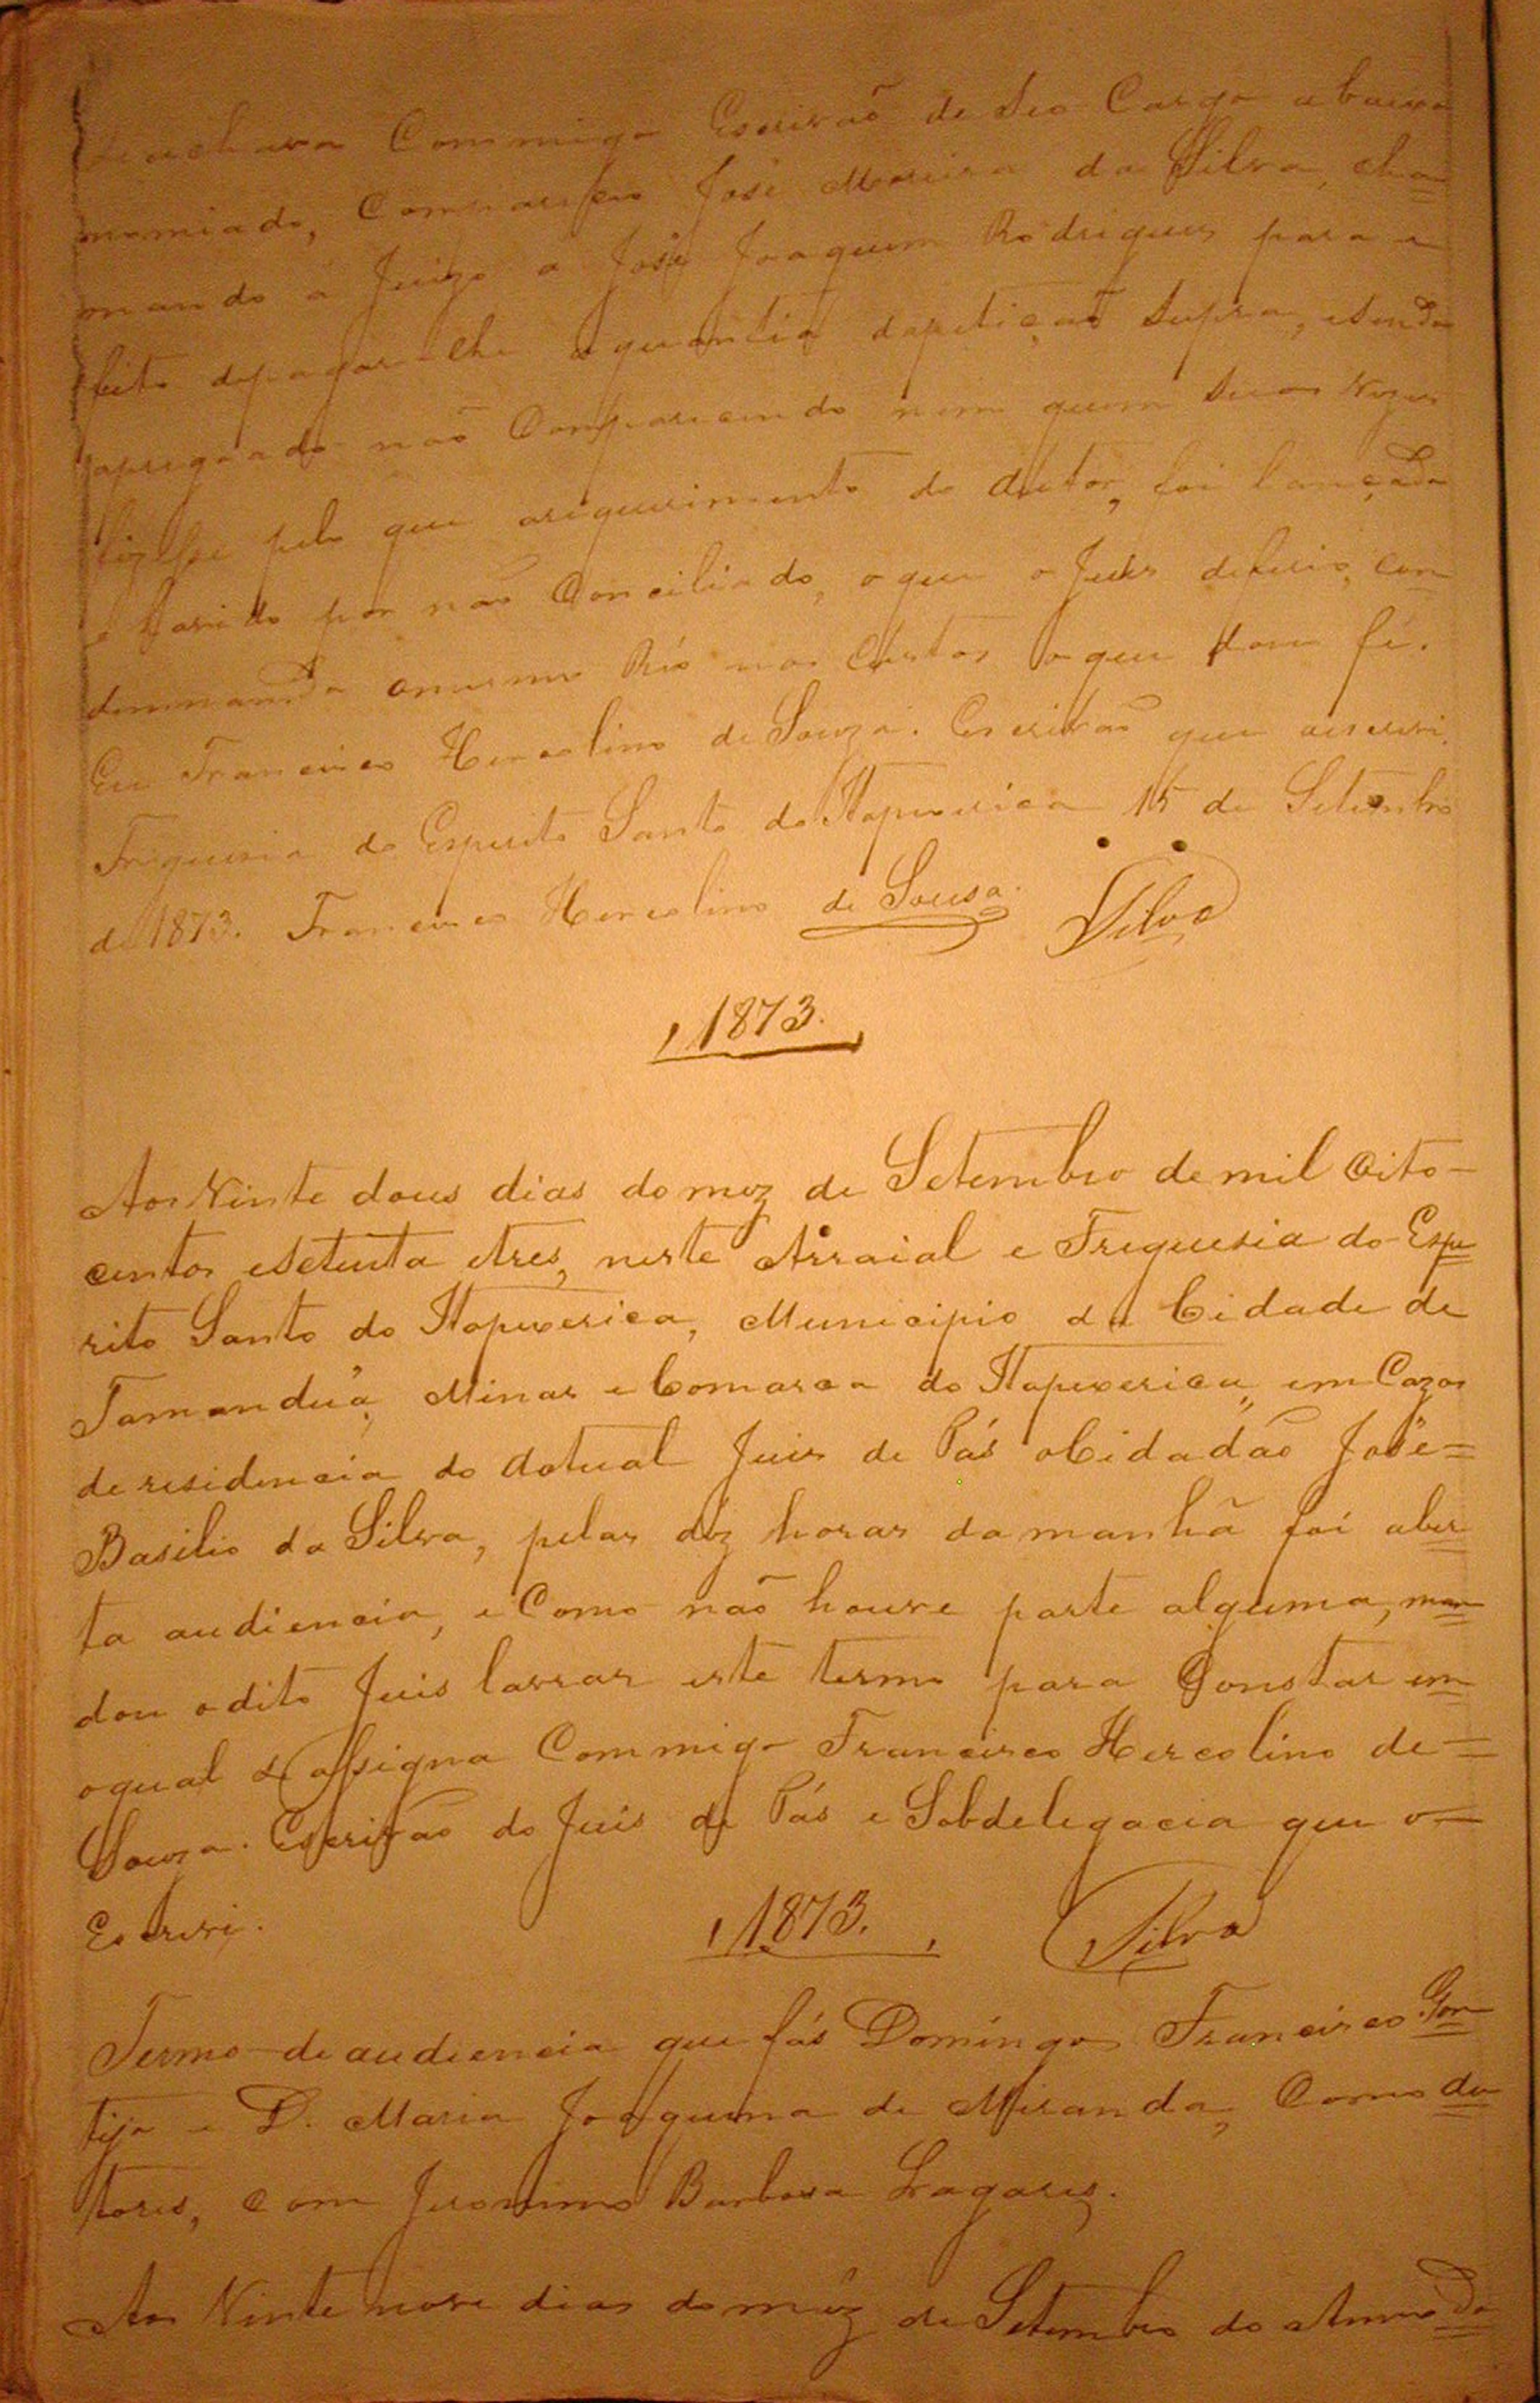 se achava Commigo Escrivaõ de Seo Cargo abaixo
nomiado, Compareseo José Moreira da Silva, cha=
mando a Juizo a José Joaquim Rodrigues para e
feito depagar-lhe aquantia dapetiçaõ Supra, esendo
apregoado naõ Comparicendo nem quem Suas Vezes
fizesse pelo que arequerimento do Autor, foi lançado
e havido por naõ Conciliado, oque o Juis deferio, con=
demnando omesmo Réo nas Custas oque dou fé.
Eu Francisco Hercolino de Souza. Escrivaõ que aescrivi.
Freguesia do Espirito Santo do Itapecerica 15 de Setembro
de 1873. Francisco Hercolino de Sousa. Silva
1873.
Aos Vinte dous dias do mez de Setembro de mil Oito-
centos eSetenta etres, neste Arraial e Freguesia do Espi=
rito Santo do Itapecerica, Municipio da Cidade de
Tamanduá, Minas e Comarca do Itapecerica, em Cazas
de residencia do Actual Juis de Pás oCidadaõ José=
Basilio da Silva, pelas déz horas damanhã foi aber=
ta audiencia, e Como naõ houve parte alguma, man=
dou odito Juis lavrar este termo para Constar em=
oqual Se assigna Commigo Francisco Hercolino de=
Souza. Escrivaõ do Juis de Pás e Sobdelegacia que o=
Escrivi.
1873. Silva
Termo de audiencia que fás Domingos Francisco Gon=
tijo e D. Maria Joaquina de Miranda, Como Au=
tores, com Jeronimo Barbosa Lagares.
Aos Vinte nove dias do mêz de Setembro do Anno do=